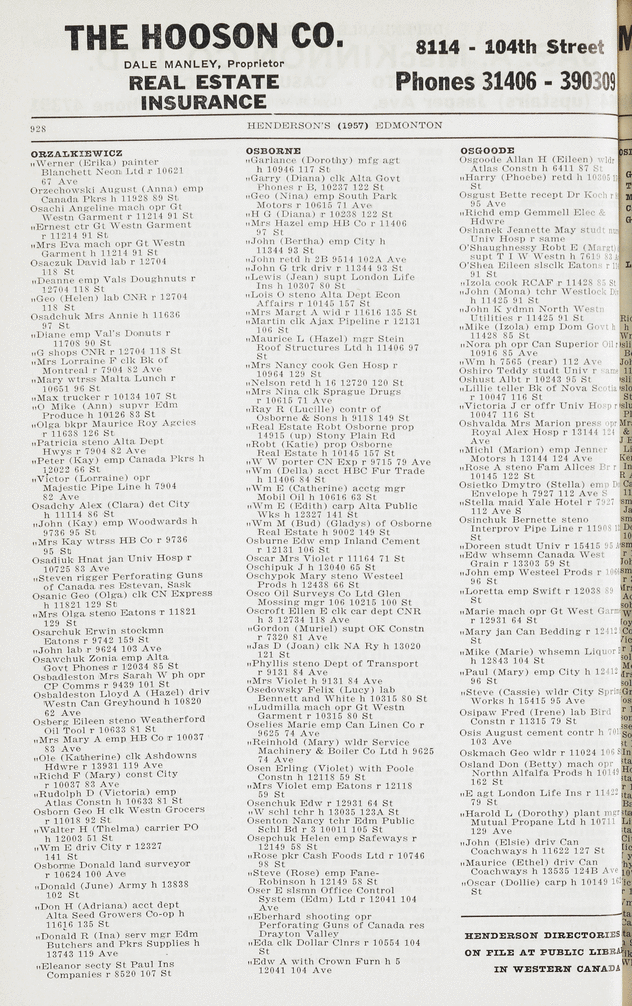 THE HOOSON CO.
DALE MANLEY, Proprietor
REAL ESTATE
INSURANCE
8114 - 104th Street
Phones 31406 - 390309
928
HENDERSON'S (1957) EDMONTON
ORZALKIEWICZ
„Werner (Erika) painter
Blanchett Neon Ltd r 10621
67 Ave
Orzechowski August (Anna) emp
Canada Pkrs h 11928 89 St
Osachi Angeline mach opr Gt
Westn Garment r 11214 91 St
„Ernest ctr Gt Westn Garment
r 11214 91 St
„Mrs Eva mach opr Gt Westn
Garment h 11214 91 St
Osaczuk David lab r 12704
118 St
„Deanne emp Vals Doughnuts r
12704 118 St
„Geo (Helen) lab CNR r 12704
118 St
Osadchuk Mrs Annie h 11636
97 St
„Diane emp Val's Donuts r
11708 90 St
„G shops CNR r 12704 118 St
„Mrs Lorraine F clk Bk of
Montreal r 7904 82 Ave
„Mary wtrss Malta Lunch r
10651 96 St
„Max trucker r 10134 107 St
„O Mike (Ann) supvr Edm
Produce h 10126 83 St
„Olga bkpr Maurice Roy Agcies
r 11638 126 St
„Patricia steno Alta Dept
Hwys r 7904 82 Ave
„Peter (Kay) emp Canada Pkrs h
12022 66 St
„Victor (Lorraine) opr
Majestic Pipe Line h 7904
82 Ave
Osadchy Alex (Clara) det City
h 11114 86 St
„John (Kay) emp Woodwards h
9736 95 St
„Mrs Kay wtrss HB Co r 9736
95 St
Osadiuk Hnat jan Univ Hosp r
10725 83 Ave
„Steven rigger Perforating Guns
of Canada res Estevan, Sask
Osanic Geo (Olga) clk CN Express
h 11821 129 St
„Mrs Olga steno Eatons r 11821
129 St
Osarchuk Erwin stockmn
Eatons r 9742 159 St
„John lab r 9624 103 Ave
Osawchuk Zonia emp Alta
Govt Phones r 12034 85 St
Osbadleston Mrs Sarah W ph opr
CP Comms r 9439 101 St
Osbaldeston Lloyd A (Hazel) driv
Westn Can Greyhound h 10820
62 Ave
Osberg Eileen steno Weatherford
Oil Tool r 10633 81 St
„Mrs Mary A emp HB Co r 10037
83 Ave
„Ole (Katherine) clk Ashdowns
Hdwre r 13931 119 Ave
„Richd F (Mary) const City
r 10037 83 Ave
„Rudolph D (Victoria) emp
Atlas Constn h 10633 81 St
Osborn Geo H clk Westn Grocers
r 11018 92 St
„Walter H (Thelma) carrier PO
h 12003 51 St
„Wm E driv City r 12327
141 St
Osborne Donald land surveyor
r 10624 100 Ave
„Donald (June) Army h 13838
102 St
„Don H (Adriana) acct dept
Alta Seed Growers Co-op h
11616 135 St
„Donald R (Ina) serv mgr Edm
Butchers and Pkrs Supplies h
13743 119 Ave
„Eleanor secty St Paul Ins
Companies r 8520 107 St
OSBORNE
„Garlance (Dorothy) mfg agt
h 10946 117 St
„Garry (Diana) clk Alta Govt
Phones r B, 10237 122 St
„Geo (Nina) emp South Park
Motors r 10615 71 Ave
„H G (Diana) r 10238 122 St
„Mrs Hazel emp HB Co r 11406
97 St
„John (Bertha) emp City h
11344 93 St
„John retd h 2B 9514 102A Ave
„John G trk driv r 11344 93 St
„Lewis (Jean) supt London Life
Ins h 10307 80 St
„Lois O steno Alta Dept Econ
Affairs r 10145 157 St
„Mrs Margt A wid r 11616 135 St
„Martin clk Ajax Pipeline r 12131
106 St
„Maurice L (Hazel) mgr Stein
Roof Structures Ltd h 11406 97
St
„Mrs Nancy cook Gen Hosp r
10964 129 St
„Nelson retd h 16 12720 120 St
„Mrs Nina clk Sprague Drugs
r 10615 71 Ave
„Ray R (Lucille) contr of
Osborne & Sons h 9118 149 St
„Real Estate Robt Osborne prop
14915 (up) Stony Plain Rd
„Robt (Katie) prop Osborne
Real Estate h 10145 157 St
„W W porter CN Exp r 9715 79 Ave
„Wm (Della) acct HBC Fur Trade
h 11406 84 St
„Wm E (Catherine) acctg mgr
Mobil Oil h 10616 63 St
„Wm E (Edith) carp Alta Public
Wks h 12327 141 St
„Wm M (Bud) (Gladys) of Osborne
Real Estate h 9002 149 St
Osburne Edw emp Inland Cement
r 12131 106 St
Oscar Mrs Violet r 11164 71 St
Oschipuk J h 13040 65 St
Oschypok Mary steno Westeel
Prods h 12438 66 St
Osco Oil Surveys Co Ltd Glen
Mossing mgr 106 10215 100 St
Oscroft Ellen E clk car dept CNR
h 3 12734 118 Ave
„Gordon (Muriel) supt OK Constn
r 7320 81 Ave
„Jas D (Joan) clk NA Ry h 13020
121 St
„Phyllis steno Dept of Transport
r 9131 84 Ave
„Mrs Violet h 9131 84 Ave
Osedowsky Felix (Lucy) lab
Bennett and White h 10315 80 St
„Ludmilla mach opr Gt Westn
Garment r 10315 80 St
Oselies Marie emp Can Linen Co r
9625 74 Ave
„Reinhold (Mary) wldr Service
Machinery & Boiler Co Ltd h 9625
74 Ave
Osen Erling (Violet) with Poole
Constn h 12118 59 St
„Mrs Violet emp Eatons r 12118
59 St
Osenchuk Edw r 12931 64 St
„W schl tchr h 13035 123A St
Osenton Nancy tchr Edm Public
Schl Bd r 3 10011 105 St
Osepchuk Helen emp Safeways r
12149 58 St
„Rose pkr Cash Foods Ltd r 10746
98 St
„Steve (Rose) emp Fane-
Robinson h 12149 58 St
Oser E slsmn Office Control
System (Edm) Ltd r 12041 104
Ave
„Eberhard shooting opr
Perforating Guns of Canada res
Drayton Valley
„Eda clk Dollar Clnrs r 10554 104
St
„Edw A with Crown Furn h 5
12041 104 Ave
OSGOODE
Osgoode Allan H (Eileen) wldr
Atlas Constn h 6411 87 St
„Harry (Phoebe) retd h 10305
Osgust Bette recept Dr Koch r
95 Ave
„Richd emp Gemmell Elec &
Hdwre
Oshanek Jeanette May studt
Univ Hosp r same
O'Shaughnessy Robt E (Margt)
supt T I W Westn h 7619 83
O'Shea Eileen slsclk Eatons r
91 St
„Izola cook RCAF r 11428 85 St
„John (Mona) tchr Westlock
h 11425 91 St
„John K ydmn North Westn
Utilities r 11425 91 St
„Mike (Izola) emp Dom Govt h
11428 85 St
„Nora ph opr Can Superior Oil
10916 85 Ave
„Wm h 7565 (rear) 112 Ave
Oshiro Teddy studt Univ r same
Oshust Albt r 10243 95 St
„Lillie teller Bk of Nova Scotia
r 10047 116 St
„Victoria J cr offr Univ Hosp r
10047 116 St
Oshvalda Mrs Marion press opr
Royal Alex Hosp r 13144 124
Ave
„Michl (Marion) emp Jenner
Motors h 13144 124 Ave
„Rose A steno Fam Allces Br r
10145 122 St
Osietko Dmytro (Stella) emp
Envelope h 7927 112 Ave S
„Stella maid Yale Hotel r 7927
112 Ave S
Osinchuk Bernette steno
Interprov Pipe Line r 11908
St
„Doreen studt Univ r 15415 95
„Edw whsemn Canada West
Grain r 13303 59 St
„John emp Westeel Prods r
96 St
„Loretta emp Swift r 12038 89
St
„Marie mach opr Gt West Garm
r 12931 64 St
„Mary jan Can Bedding r 12412
St
„Mike (Marie) whsemn Liquor
h 12843 104 St
„Paul (Mary) emp City h 12412
96 St
„Steve (Cassie) wldr City
Works h 15415 95 Ave
Osipaw Fred (Irene) lab Bird
Constn r 11315 79 St
Osis August cement contr h
103 Ave
Oskmach Geo wldr r 11024 106
Osland Don (Betty) mach opr
Northn Alfalfa Prods h 10149
162 St
„E agt London Life Ins r 11422
79 St
„Harold L (Dorothy) plant mgr
Mutual Propane Ltd h 10711
129 Ave
„John (Elsie) driv Can
Coachways h 11622 127 St
„Maurice (Ethel) driv Can
Coachways h 13535 124B Ave
„Oscar (Dollie) carp h 10149
St
HENDERSON DIRECTORIES
ON FILE AT PUBLIC
IN WESTERN CANADA